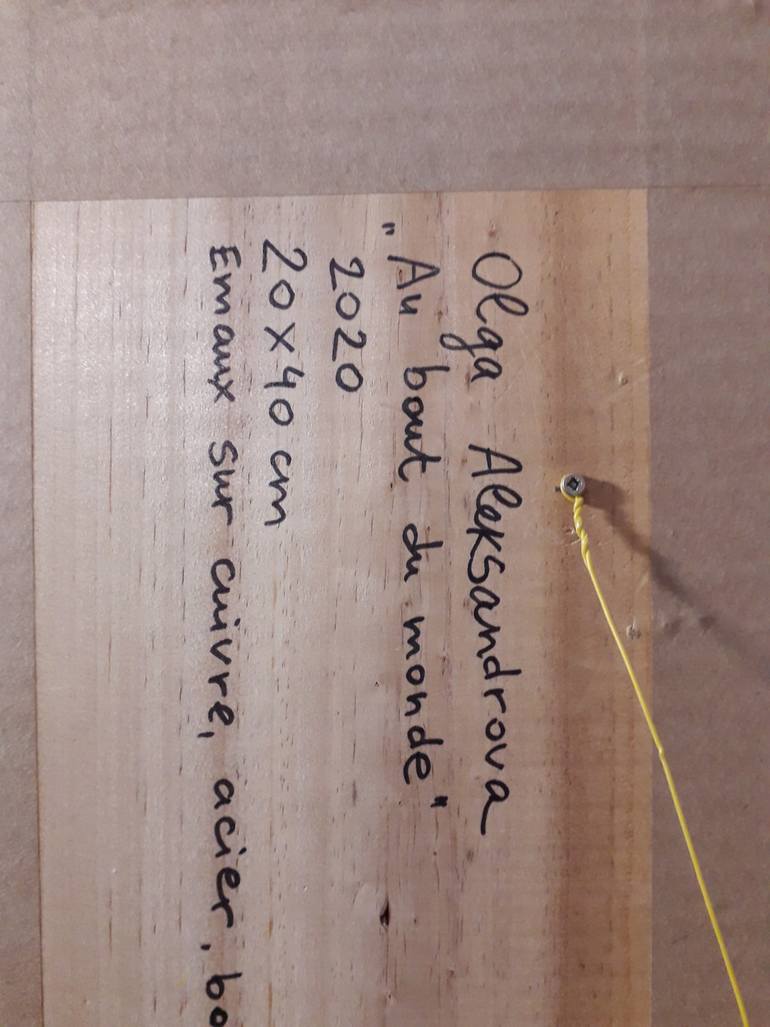 Olga Aleksandrova
"Au bout du monde"
2020
20 x 40 cm
Emaux sur cuivre, acier, bo